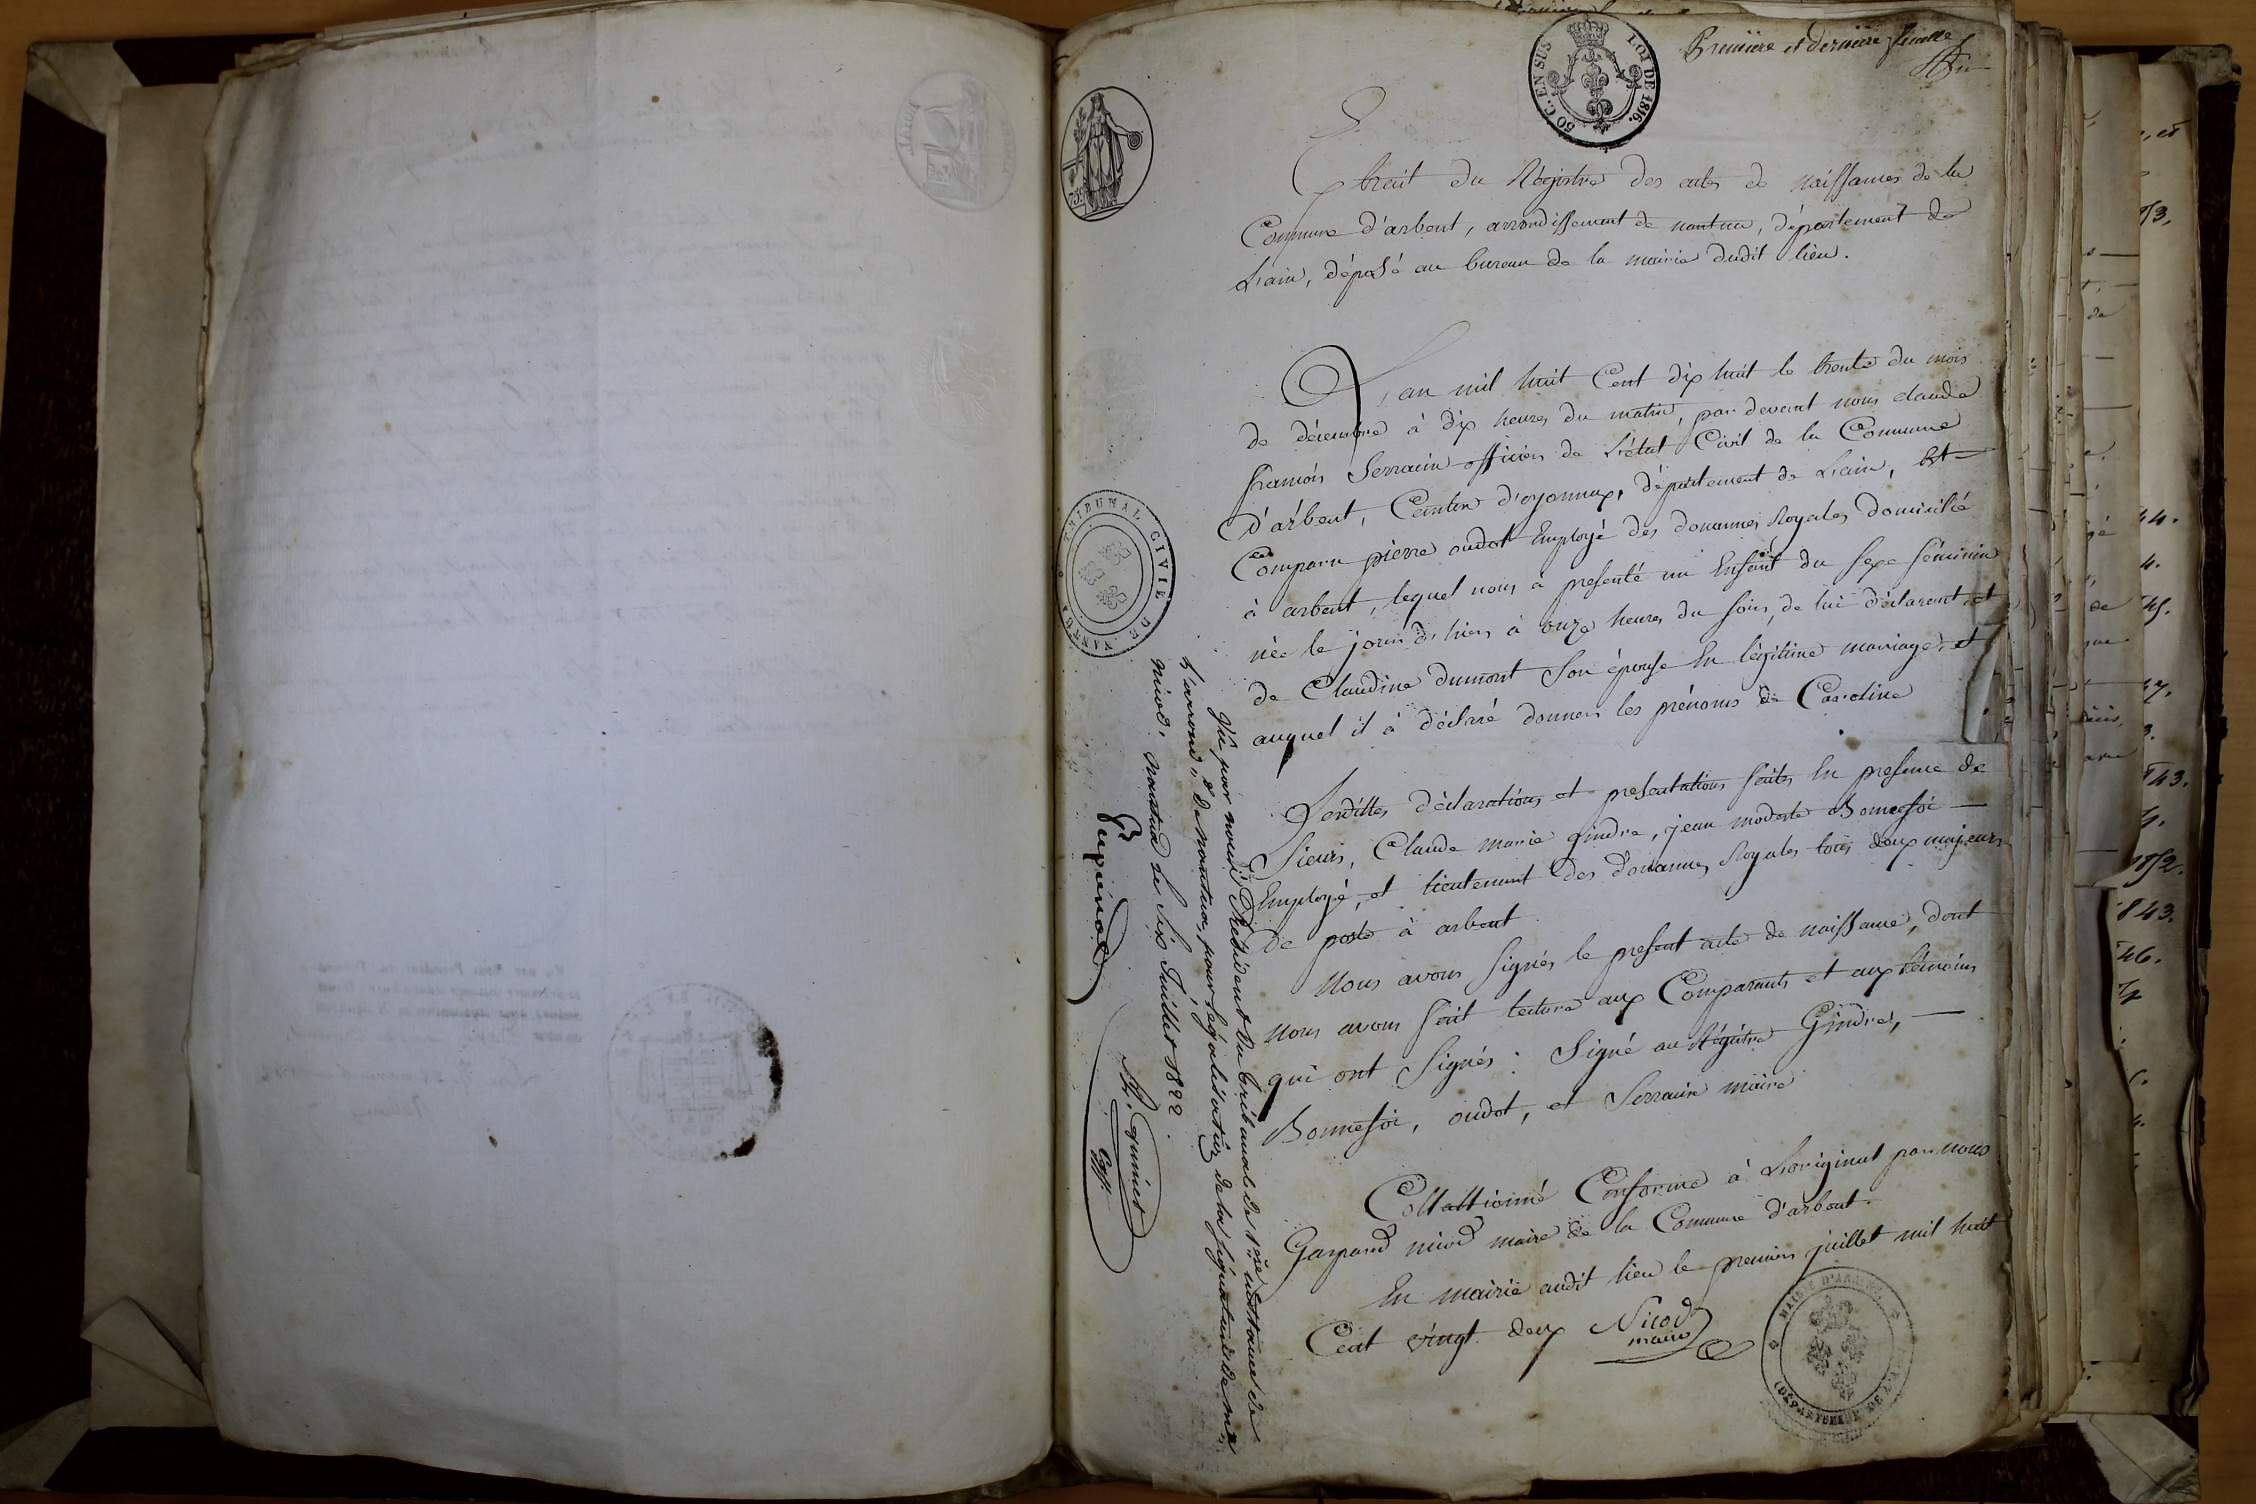 Première et dernière feuille
50 C. EN SUS
LOI DE 1816.
Extrait du Régistre des actes de naissances de la
Commune d'arbent, arrondissement de nantua, département de
L'ain, déposé au bureau de la mairie dudit lieu.
L'an mil huit Cent dix huit le trente du mois
de décembre à dix heures du matin, par devant nous claude
françois Serrain officier de L'état Civil de la Commune
d'arbent, Canton d'oyonnax, département de L'ain, Est
Comparu pierre oudot Employé des douannes Royales domicilié
à arbent, lequel nous à présenté un Enfant du sexe féminin
née le jour d'hier à onze heures du soir, de lui déclarant et
de Claudine dumont Son épouse En légitime mariage, et
auquel il à déclaré donner les prénoms de Caroline
Lesdittes déclarations et présentations faites En présence de
Sieurs, Claude marie gindre, jean modeste Bonnefoi
Employé, et lieutenant des douannes Royales tous deux majeurs
de poste à arbent
Nous avons Signés le présent acte de naissance, dont
nous avons fait lecture aux Comparants et aux témoins
qui ont Signés : Signé au Régistre Gindre,
Bonnefoi, oudot, et Serrain maire
Collationné Conforme à L'original par nous
Gaspard nicod maire de la Commune d'arbent.
En mairie audit lieu le premier juillet mil huit
Cent vingt deux Nicod
maire
MAIRIE D'ARBENT
(DÉPARTEMENT DE L'AIN)
75
TRIBUNAL CIVIL DE NANTUA
Vu par nous Président du tribunal de 1ère instance de
L'arrond. de nantua, pour légalisation de la signature de Mr
nicod, nantua le Six Juillet 1822